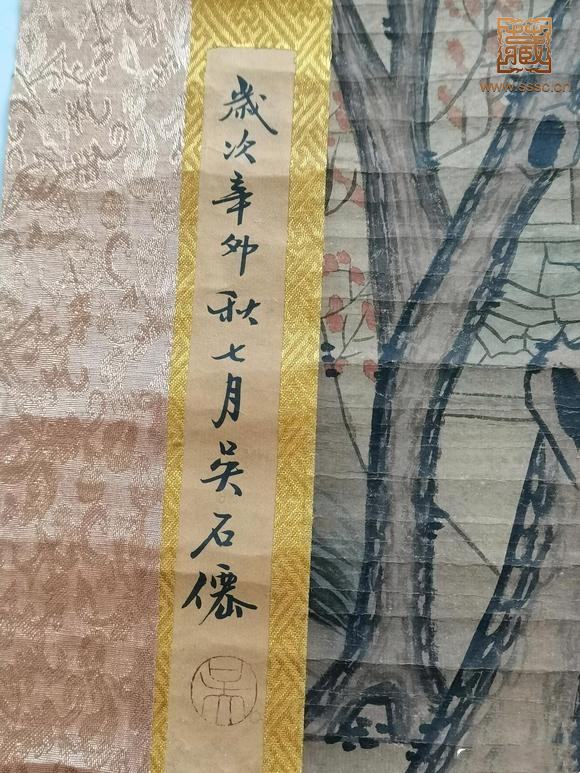 歲次辛卯秋七月吳石僊
吳
藏
www.sssc.cn